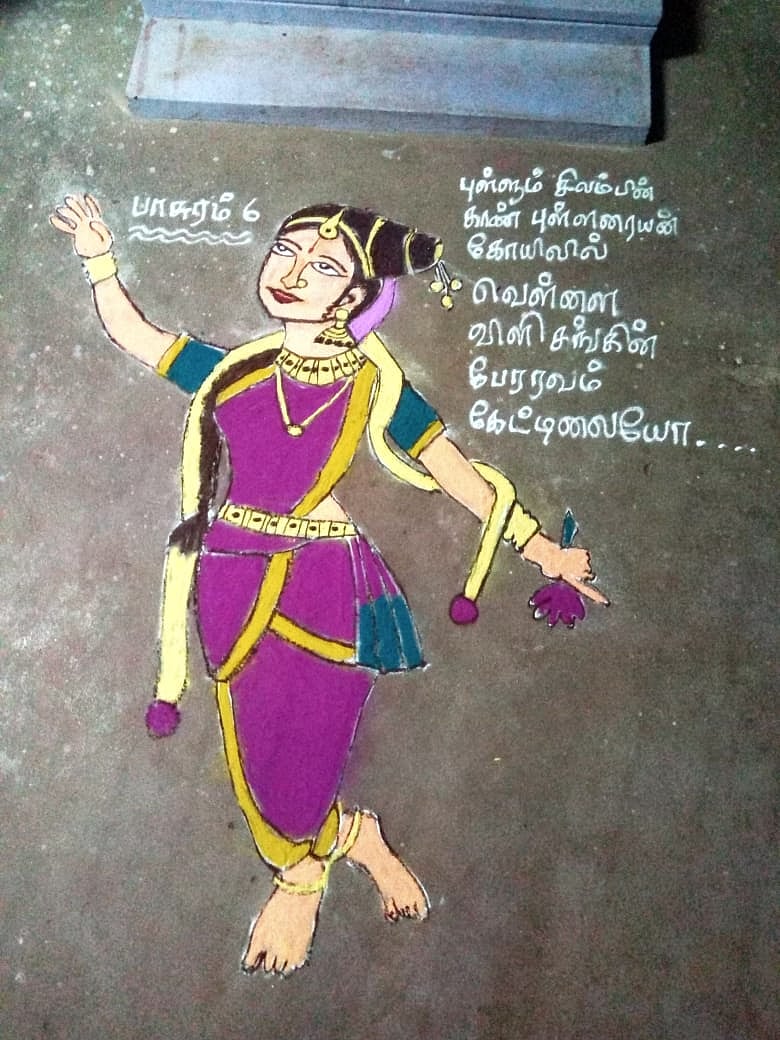 பாசுரம் 6
புள்ளும் சிலம்பின்
காண் புள்ளரையன்
கோயிலில்
வெள்ளை
விளி சங்கின்
பேரரவம்
கேட்டிலையோ.....